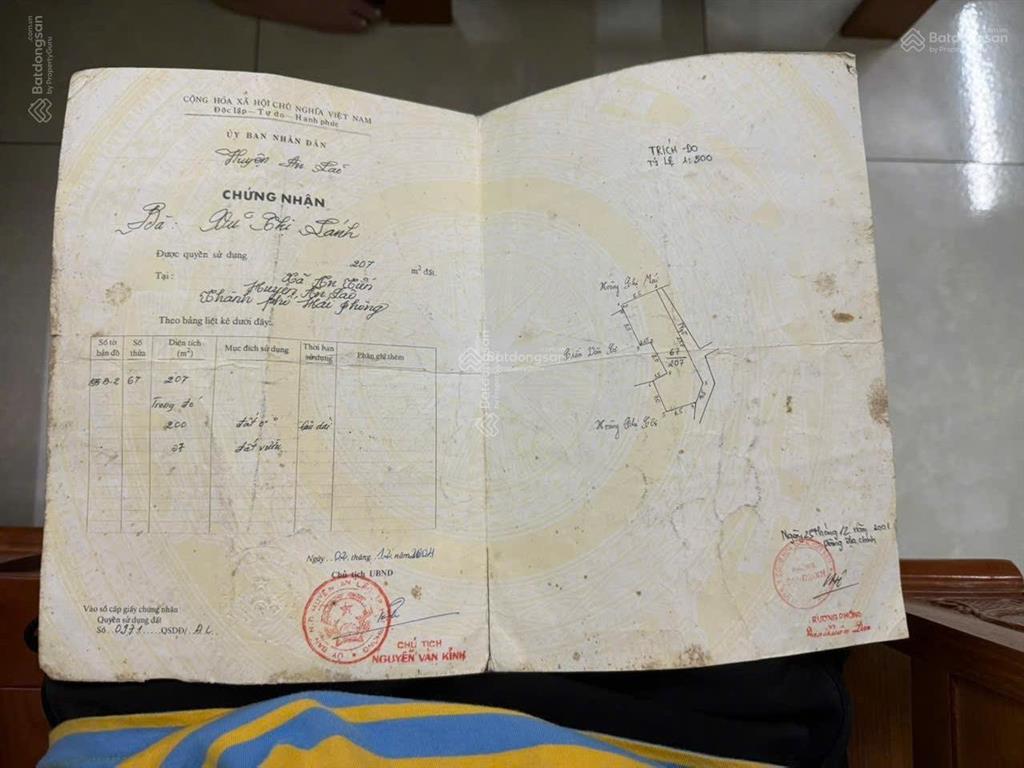 CỘNG HÒA XÃ HỘI CHỦ NGHĨA VIỆT NAM
Độc lập - Tự do - Hạnh phúc
ỦY BAN NHÂN DÂN
Huyện An Lão
CHỨNG NHẬN
Bà: Thị Lánh
Được quyền sử dụng 207 m² đất.
Tại: Xã An Tiến
Huyện An Lão
Thành phố Hải Phòng
Theo bảng liệt kê dưới đây:
Số tờ bản đồ
Số thửa
Diện tích (m²)
Mục đích sử dụng
Thời hạn sử dụng
Phần ghi thêm
B-2 67 207
Trong đó
200 đất ở lâu dài
07 đất vườn
Ngày 02 tháng 12 năm 2004
Chủ tịch UBND
Vào sổ cấp giấy chứng nhận
Quyền sử dụng đất
Số 0371 QSDĐ/ A L
CHỦ TỊCH
NGUYỄN VĂN KỈNH
TRÍCH ĐO
TỶ LỆ 1:500
Hoàng Thị
Trần Văn
67
207
Hoàng Thị
Ngày 25 tháng 12 năm 2001
phòng địa chính
TRƯỞNG PHÒNG
Batdongsan.com.vn
by PropertyGuru
Batdongsan.com.vn
by PropertyGuru
Batdongsan